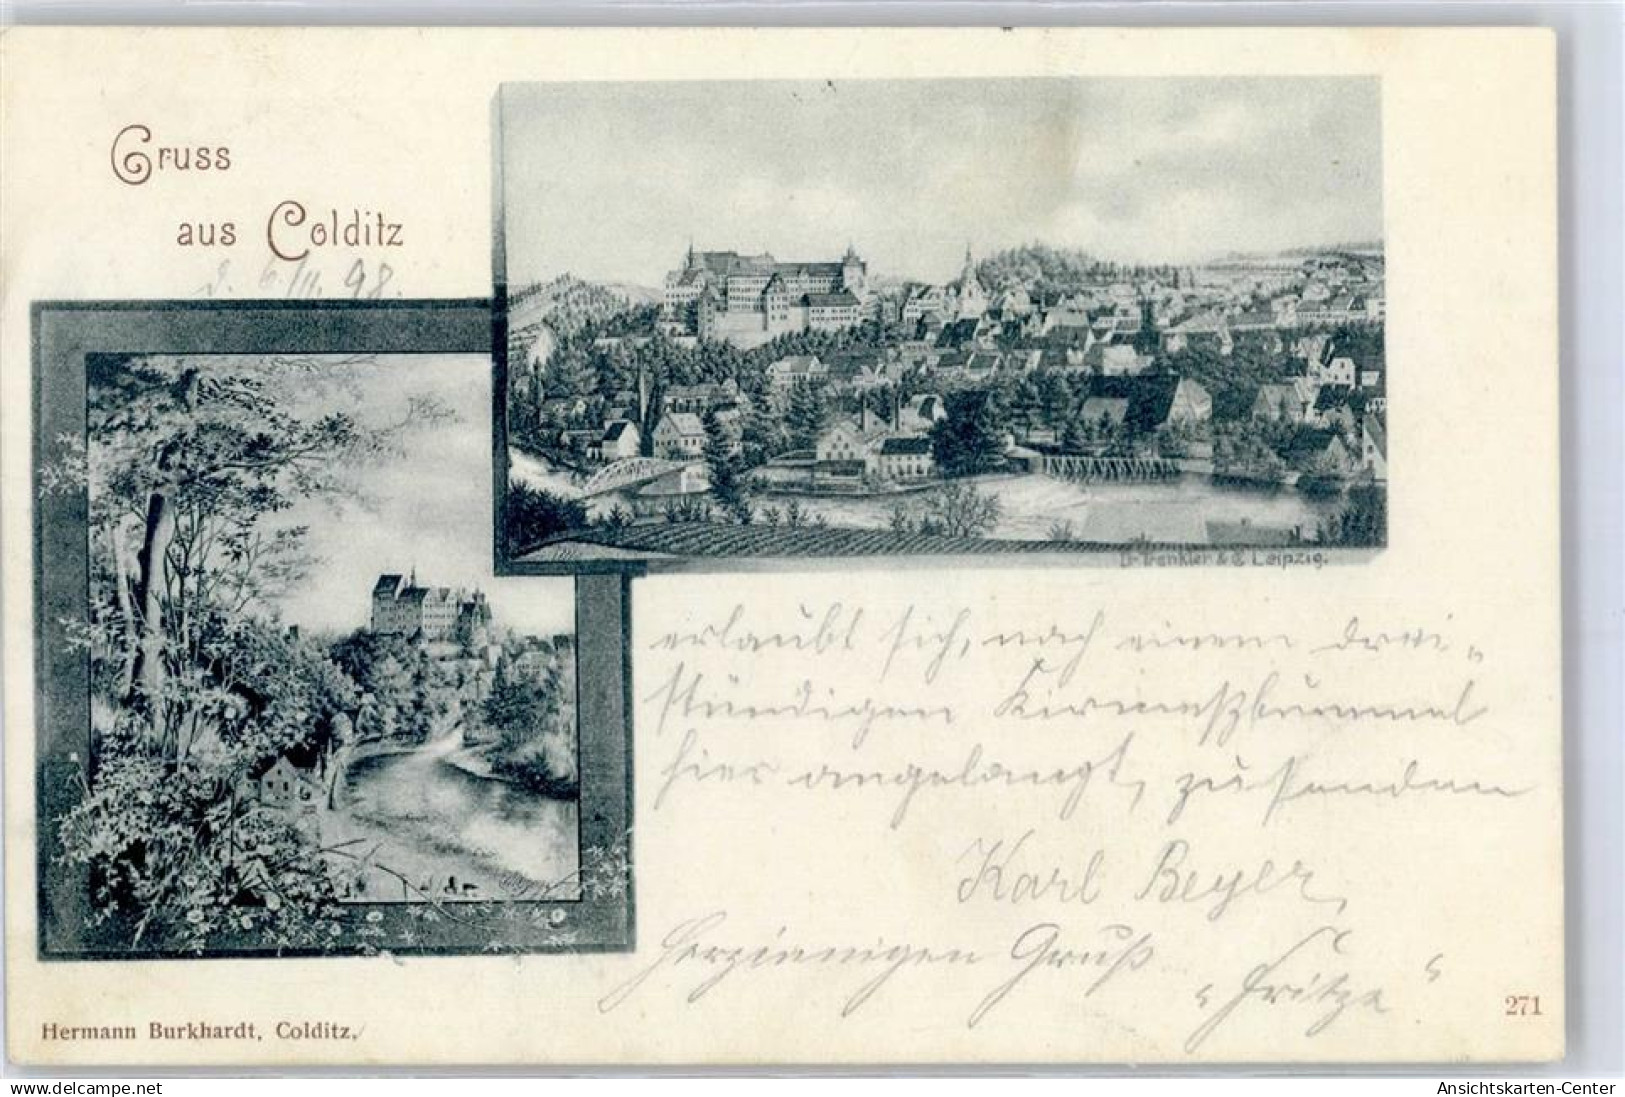 Gruss
aus Colditz
d. 6/II. 98.
Dr. Trenkler & Co Leipzig.
erlaubt sich, nach einem drei-
stündigen Kirmeßbummel
hier angelangt, zu senden
Karl Beyer,
Herzinnigen Gruß
"Fritze"
Hermann Burkhardt, Colditz.
271
akpool.de
Ansichtskarten-Center